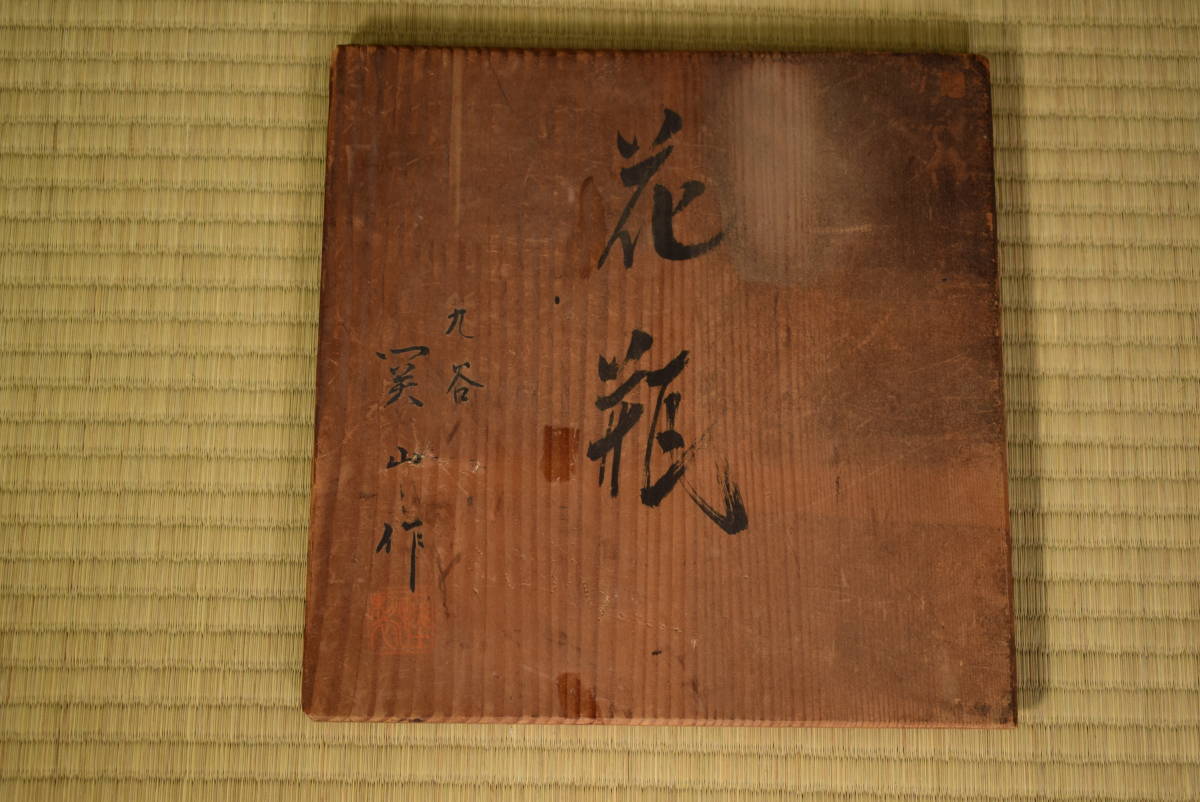 花瓶
九谷
関山作